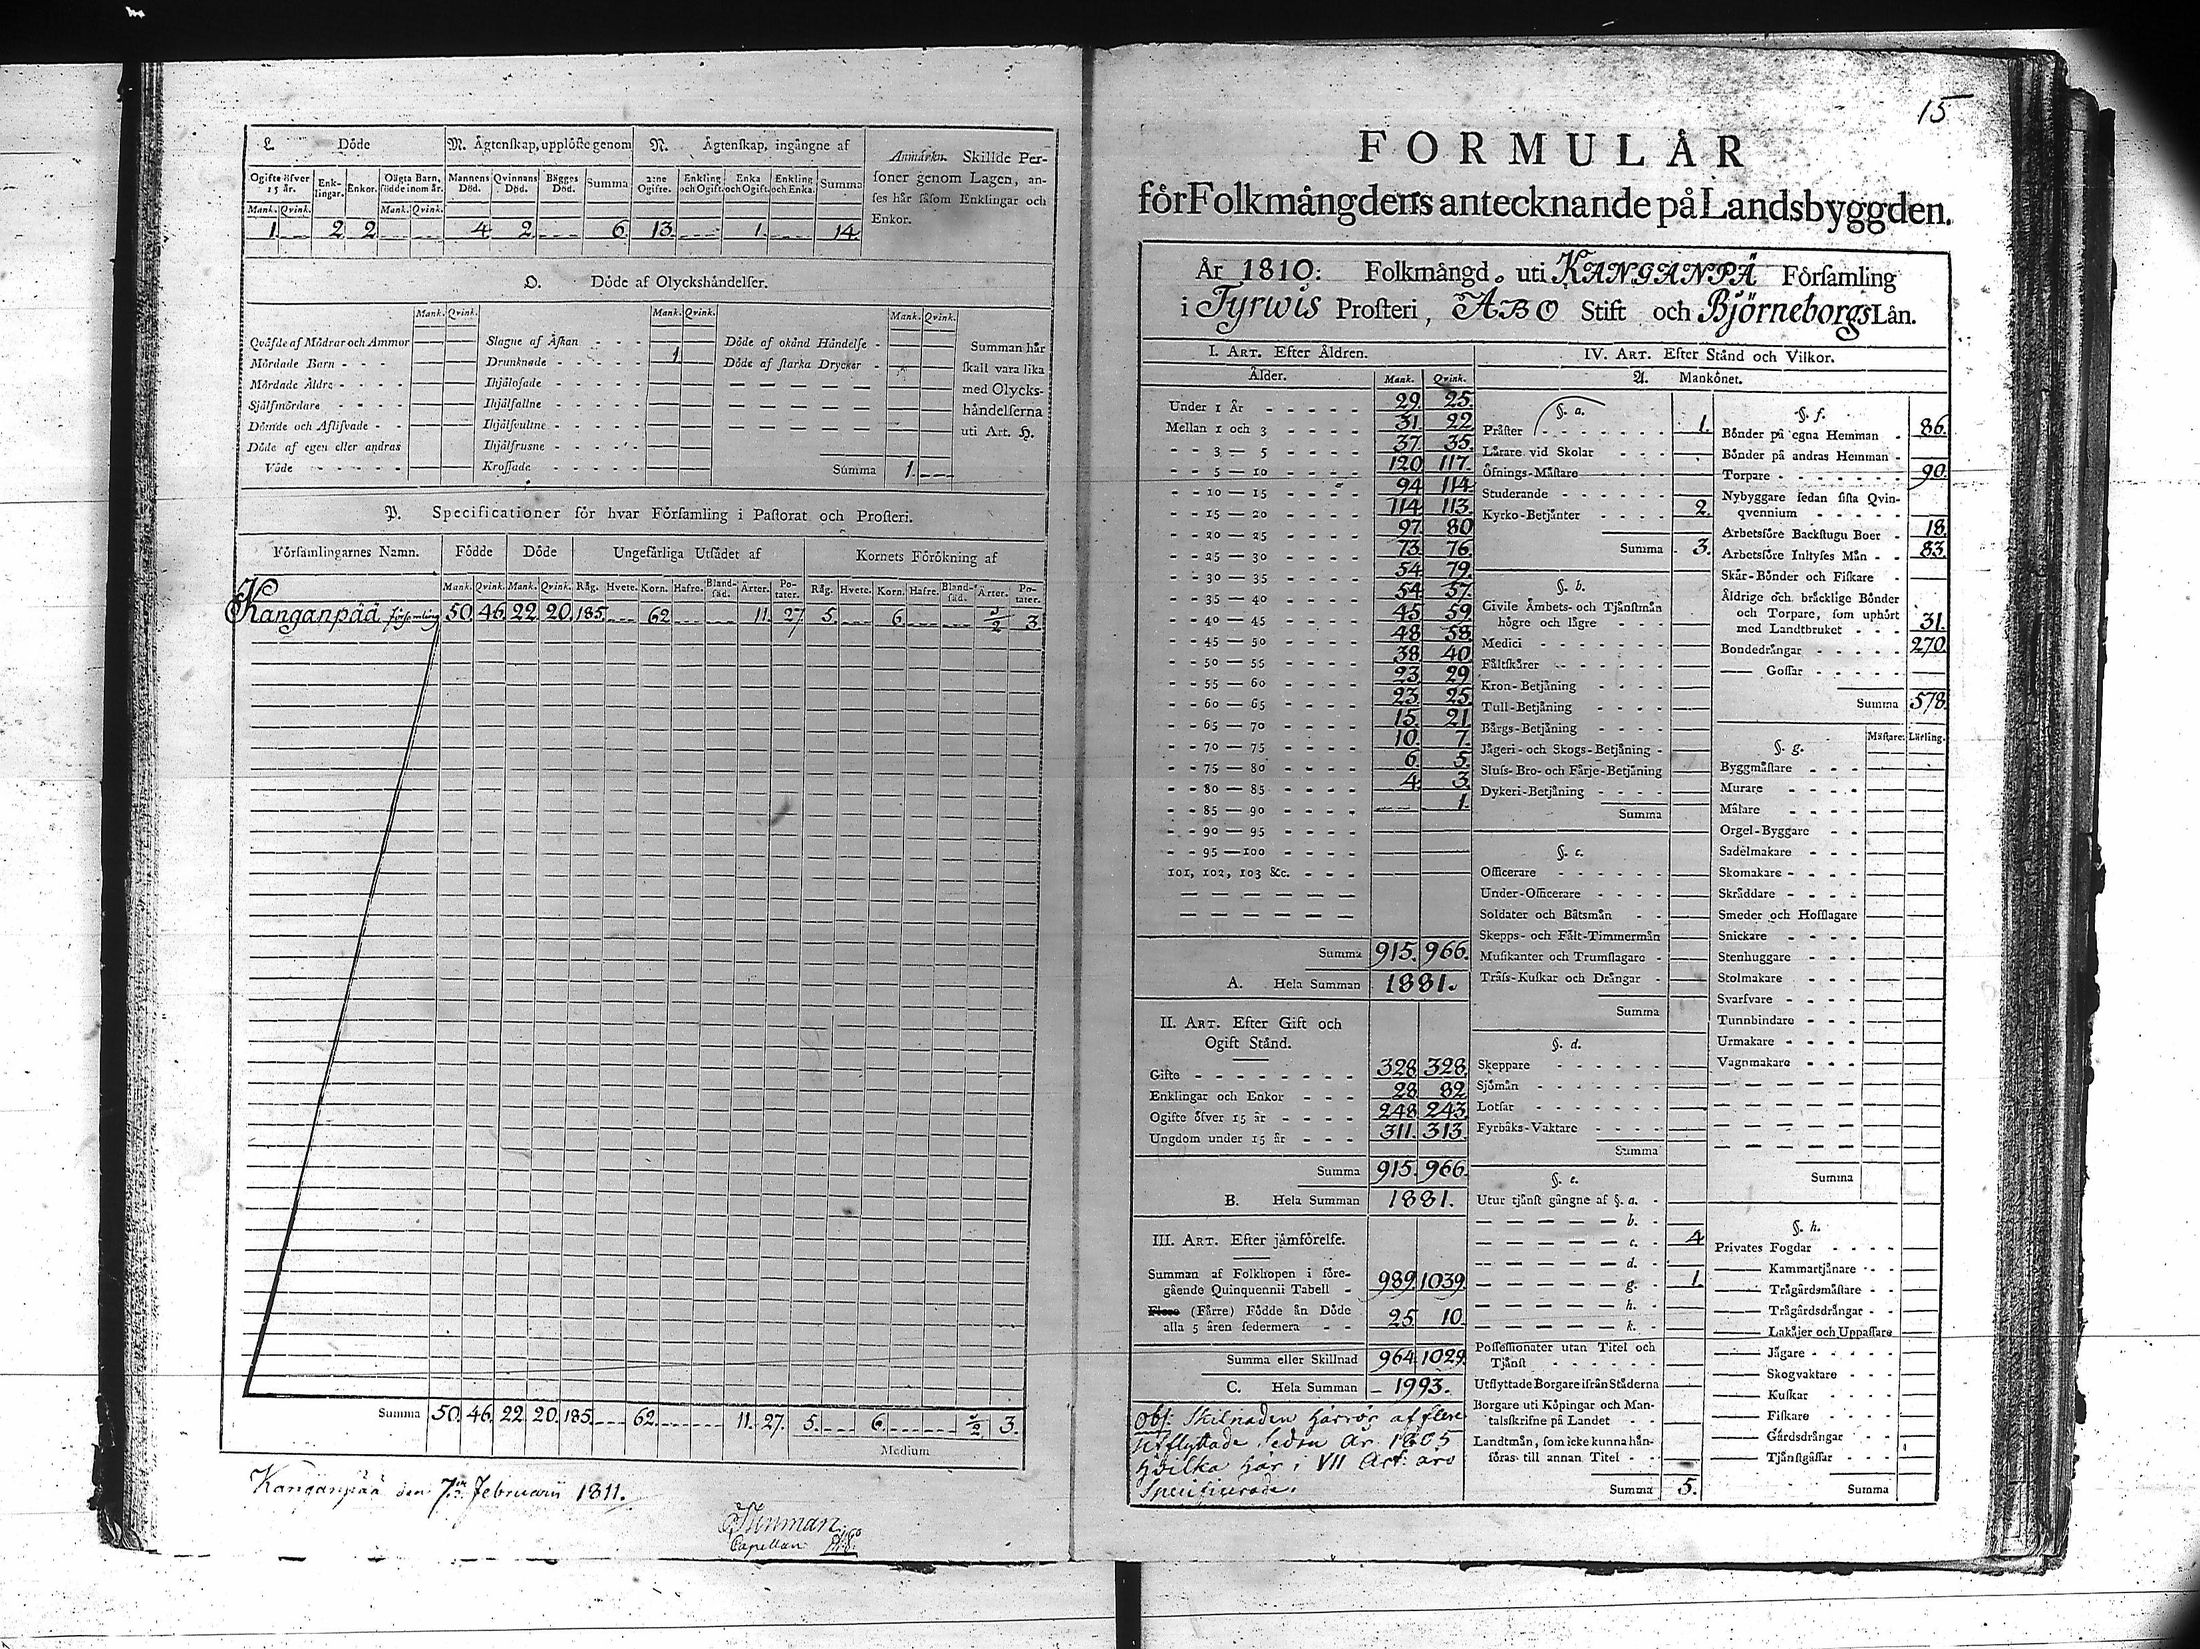 L. Döde
M. Ägtenskap, upplöste genom
N. Ägtenskap, ingångne af
Anmärkn. Skillde Per-
soner genom Lagen, an-
ses här såsom Enklingar och
Enkor.
Ogifte öfver 15 år. Enk-lingar. Enkor. Oägta Barn, födde inom år. Mannens Död. Qvinnans Död. Bägges Död. Summa 2:ne Ogifte. Enkling och Ogift. Enka och Ogift. Enkling och Enka. Summa
Mank. Qvink. Mank. Qvink.
1. 2. 2. 4. 2. 6. 13. 1. 14.
O. Döde af Olyckshändelser.
Mank. Qvink. Mank. Qvink. Mank. Qvink.
Qväfde af Mödrar och Ammor
Mördade Barn
Mördade Äldre
Sjelfmördare
Dömde och Aflifvade
Döde af egen eller andras
Våde
Slagne af Åskan
Drunknade 1.
Ihjälosade
Ihjälfallne
Ihjälsvultne
Ihjälfrusne
Krossade
Döde af okänd Händelse
Döde af starka Drycker
Summan här
skall vara lika
med Olycks-
händelserna
uti Art. H.
Summa 1.
P. Specificationer för hvar Församling i Pastorat och Prosteri.
Församlingarnes Namn. Födde Döde Ungefärliga Utsädet af Kornets Förökning af
Mank. Qvink. Mank. Qvink. Råg. Hvete. Korn. Hafre. Bland-säd. Ärter. Po-tater. Råg. Hvete. Korn. Hafre. Bland-säd. Ärter. Po-tater.
Kanganpää församling 50. 46. 22. 20. 185. 62. 11. 27. 5. 6. 3.
Summa 50. 46. 22. 20. 185. 62. 11. 27. 5. 6. 3.
Medium
Kanganpää den 7de Februarii 1811.
Capellan
15
FORMULÄR
för Folkmängdens antecknande på Landsbyggden.
År 1810: Folkmängd. uti KANGANPÄ Församling
i Tyrwis Prosteri, ABO Stift och Björneborgs Län.
I. ART. Efter Åldren.
Ålder. Mank. Qvink.
Under 1 År 29. 25.
Mellan 1 och 3 31. 22.
3 — 5 37. 35.
5 — 10 120. 117.
10 — 15 94. 114.
15 — 20 114. 113.
20 — 25 97. 80.
25 — 30 73. 76.
30 — 35 54. 79.
35 — 40 54. 57.
40 — 45 45. 59.
45 — 50 48. 58.
50 — 55 38. 40.
55 — 60 23. 29.
60 — 65 23. 25.
65 — 70 15. 21.
70 — 75 10. 7.
75 — 80 6. 5.
80 — 85 4. 3.
85 — 90 1.
90 — 95
95 — 100
101, 102, 103 &c.
Summa 915. 966.
A. Hela Summan 1881.
II. ART. Efter Gift och
Ogift Stånd.
Gifte 328. 328.
Enklingar och Enkor 28. 82.
Ogifte öfver 15 år 248. 243.
Ungdom under 15 år 311. 313.
Summa 915. 966.
B. Hela Summan 1881.
III. ART. Efter jämförelse.
Summan af Folkhopen i före-
gående Quinquennii Tabell 989. 1039.
Flere (Färre) Födde än Döde
alla 5 åren sedermera 25. 10.
Summa eller Skillnad 964. 1029.
C. Hela Summan 1993.
Obs: Skilnaden härrör af flere
utflyttade sedan År 1805
hvilka här i VII Art: äro
Specificerade.
IV. ART. Efter Stånd och Vilkor.
A. Mankönet.
§. a.
Präster 1.
Lärare vid Skolar
Öfnings-Mästare
Studerande
Kyrko-Betjänter 2.
Summa 3.
§. b.
Civile Ämbets- och Tjänstmän
högre och lägre
Medici
Fältskärer
Kron-Betjäning
Tull-Betjäning
Bärgs-Betjäning
Jägeri- och Skogs-Betjäning
Sluss- Bro- och Färje-Betjäning
Dykeri-Betjäning
Summa
§. c.
Officerare
Under-Officerare
Soldater och Båtsmän
Skepps- och Fält-Timmermän
Musikanter och Trumslagare
Träss-Kuskar och Drängar
Summa
§. d.
Skeppare
Sjömän
Lotsar
Fyrbåks-Vaktare
Summa
§. e.
Utur tjänst gångne af §. a.
b.
c. 4.
d.
g. 1.
h.
k.
Possessionater utan Titel och
Tjänst
Utflyttade Borgare ifrån Städerna
Borgare uti Köpingar och Man-
talsskrifne på Landet
Landtmän, som icke kunna hän-
föras till annan Titel
Summa 5.
§. f.
Bönder på egna Hemman 86.
Bönder på andras Hemman
Torpare 90.
Nybyggare sedan sista Qvin-
qvennium
Arbetsföre Backstugu Boer 18.
Arbetsföre Inhyses Män 83.
Skär-Bönder och Fiskare
Åldrige och bräcklige Bönder
och Torpare, som uphört
med Landtbruket 31.
Bondedrängar 270.
Gossar
Summa 578.
§. g. Mästare. Lärling.
Byggmästare
Murare
Målare
Orgel-Byggare
Sadelmakare
Skomakare
Skräddare
Smeder och Hofslagare
Snickare
Stenhuggare
Stolmakare
Svarfvare
Tunnbindare
Urmakare
Vagnmakare
Summa
§. h.
Privates Fogdar
Kammartjänare
Trägårdsmästare
Trägårdsdrängar
Lakåjer och Uppassare
Jägare
Skogvaktare
Kuskar
Fiskare
Gårdsdrängar
Tjänstgässar
Summa